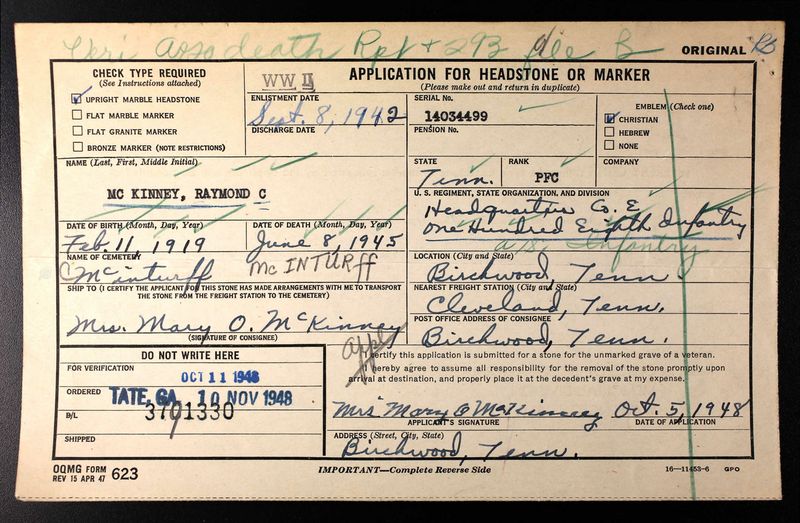 Veri asso death Rpt + 293 file B
ORIGINAL
CHECK TYPE REQUIRED
(See Instructions attached)
UPRIGHT MARBLE HEADSTONE
FLAT MARBLE MARKER
FLAT GRANITE MARKER
BRONZE MARKER (NOTE RESTRICTIONS)
WW II
APPLICATION FOR HEADSTONE OR MARKER
(Please make out and return in duplicate)
ENLISTMENT DATE
Sept. 8, 1942
DISCHARGE DATE
SERIAL No.
14034499
PENSION No.
EMBLEM (Check one)
CHRISTIAN
HEBREW
NONE
NAME (Last, First, Middle Initial)
MC KINNEY, RAYMOND C
STATE
Tenn.
RANK
PFC
COMPANY
U. S. REGIMENT, STATE ORGANIZATION, AND DIVISION
Headquarter Co. E
One Hundred Eighth Infantry
Infantry
DATE OF BIRTH (Month, Day, Year)
Feb. 11, 1919
DATE OF DEATH (Month, Day, Year)
June 8, 1945
NAME OF CEMETERY
McInturff
Mc INTURff
LOCATION (City and State)
Birchwood, Tenn.
SHIP TO (I CERTIFY THE APPLICANT FOR THIS STONE HAS MADE ARRANGEMENTS WITH ME TO TRANSPORT
THE STONE FROM THE FREIGHT STATION TO THE CEMETERY)
Mrs. Mary O. McKinney
(SIGNATURE OF CONSIGNEE)
NEAREST FREIGHT STATION (City and State)
Cleveland, Tenn.
POST OFFICE ADDRESS OF CONSIGNEE
Birchwood, Tenn.
DO NOT WRITE HERE
FOR VERIFICATION
OCT 11 1948
ORDERED
TATE, GA. 10 NOV 1948
B/L
3701330
SHIPPED
appl
I certify this application is submitted for a stone for the unmarked grave of a veteran.
I hereby agree to assume all responsibility for the removal of the stone promptly upon
arrival at destination, and properly place it at the decedent's grave at my expense.
Mrs Mary O McKinney Oct. 5, 1948
APPLICANT'S SIGNATURE
DATE OF APPLICATION
ADDRESS (Street, City, State)
Birchwood, Tenn.
OQMG FORM
REV 15 APR 47 623
IMPORTANT—Complete Reverse Side
16—11453-6 GPO